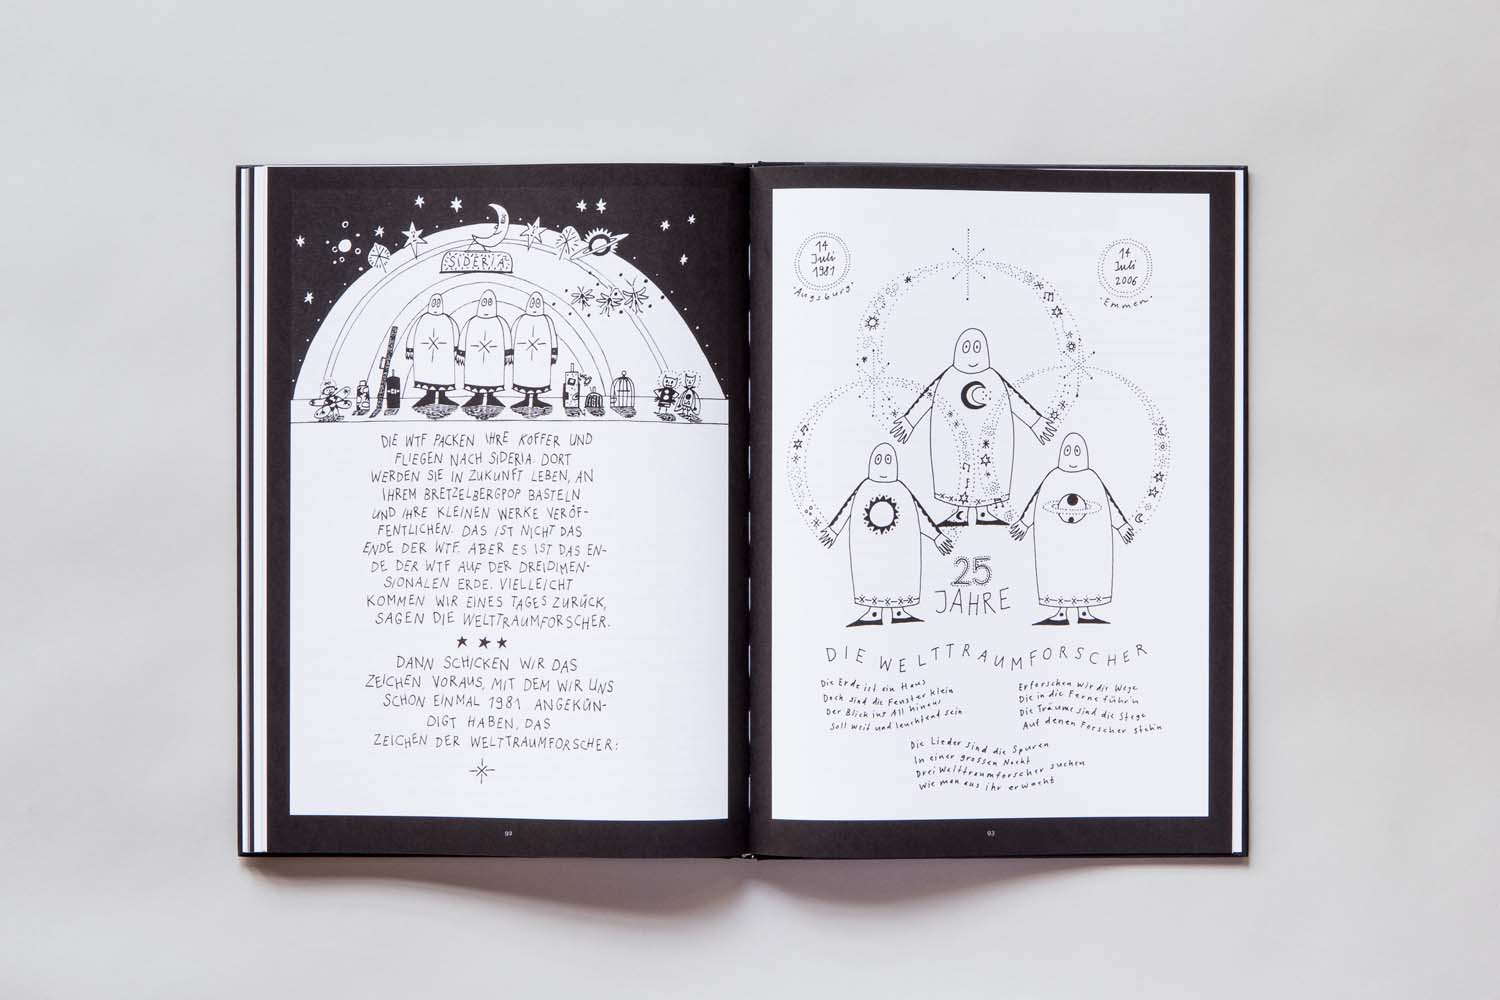 SIDERIA
DIE WTF PACKEN IHRE KOFFER UND
FLIEGEN NACH SIDERIA. DORT
WERDEN SIE IN ZUKUNFT LEBEN, AN
IHREM BRETZELBERGPOP BASTELN
UND IHRE KLEINEN WERKE VERÖF-
FENTLICHEN. DAS IST NICHT DAS
ENDE DER WTF. ABER ES IST DAS EN-
DE DER WTF AUF DER DREIDIMEN-
SIONALEN ERDE. VIELLEICHT
KOMMEN WIR EINES TAGES ZURÜCK,
SAGEN DIE WELTTRAUMFORSCHER.
DANN SCHICKEN WIR DAS
ZEICHEN VORAUS, MIT DEM WIR UNS
SCHON EINMAL 1981 ANGEKÜN-
DIGT HABEN, DAS
ZEICHEN DER WELTTRAUMFORSCHER:
92
14
Juli
1981
"Augsburg"
14
Juli
2006
"Emmen"
25
JAHRE
DIE WELTTRAUMFORSCHER
Die Erde ist ein Haus
Doch sind die Fenster klein
Der Blick ins All hinaus
Soll weit und leuchtend sein
Erforschen wir die Wege
Die in die Ferne führ'n
Die Träume sind die Stege
Auf denen Forscher steh'n
Die Lieder sind die Spuren
In einer grossen Nacht
Drei Welttraumforscher suchen
Wie man aus ihr erwacht
93